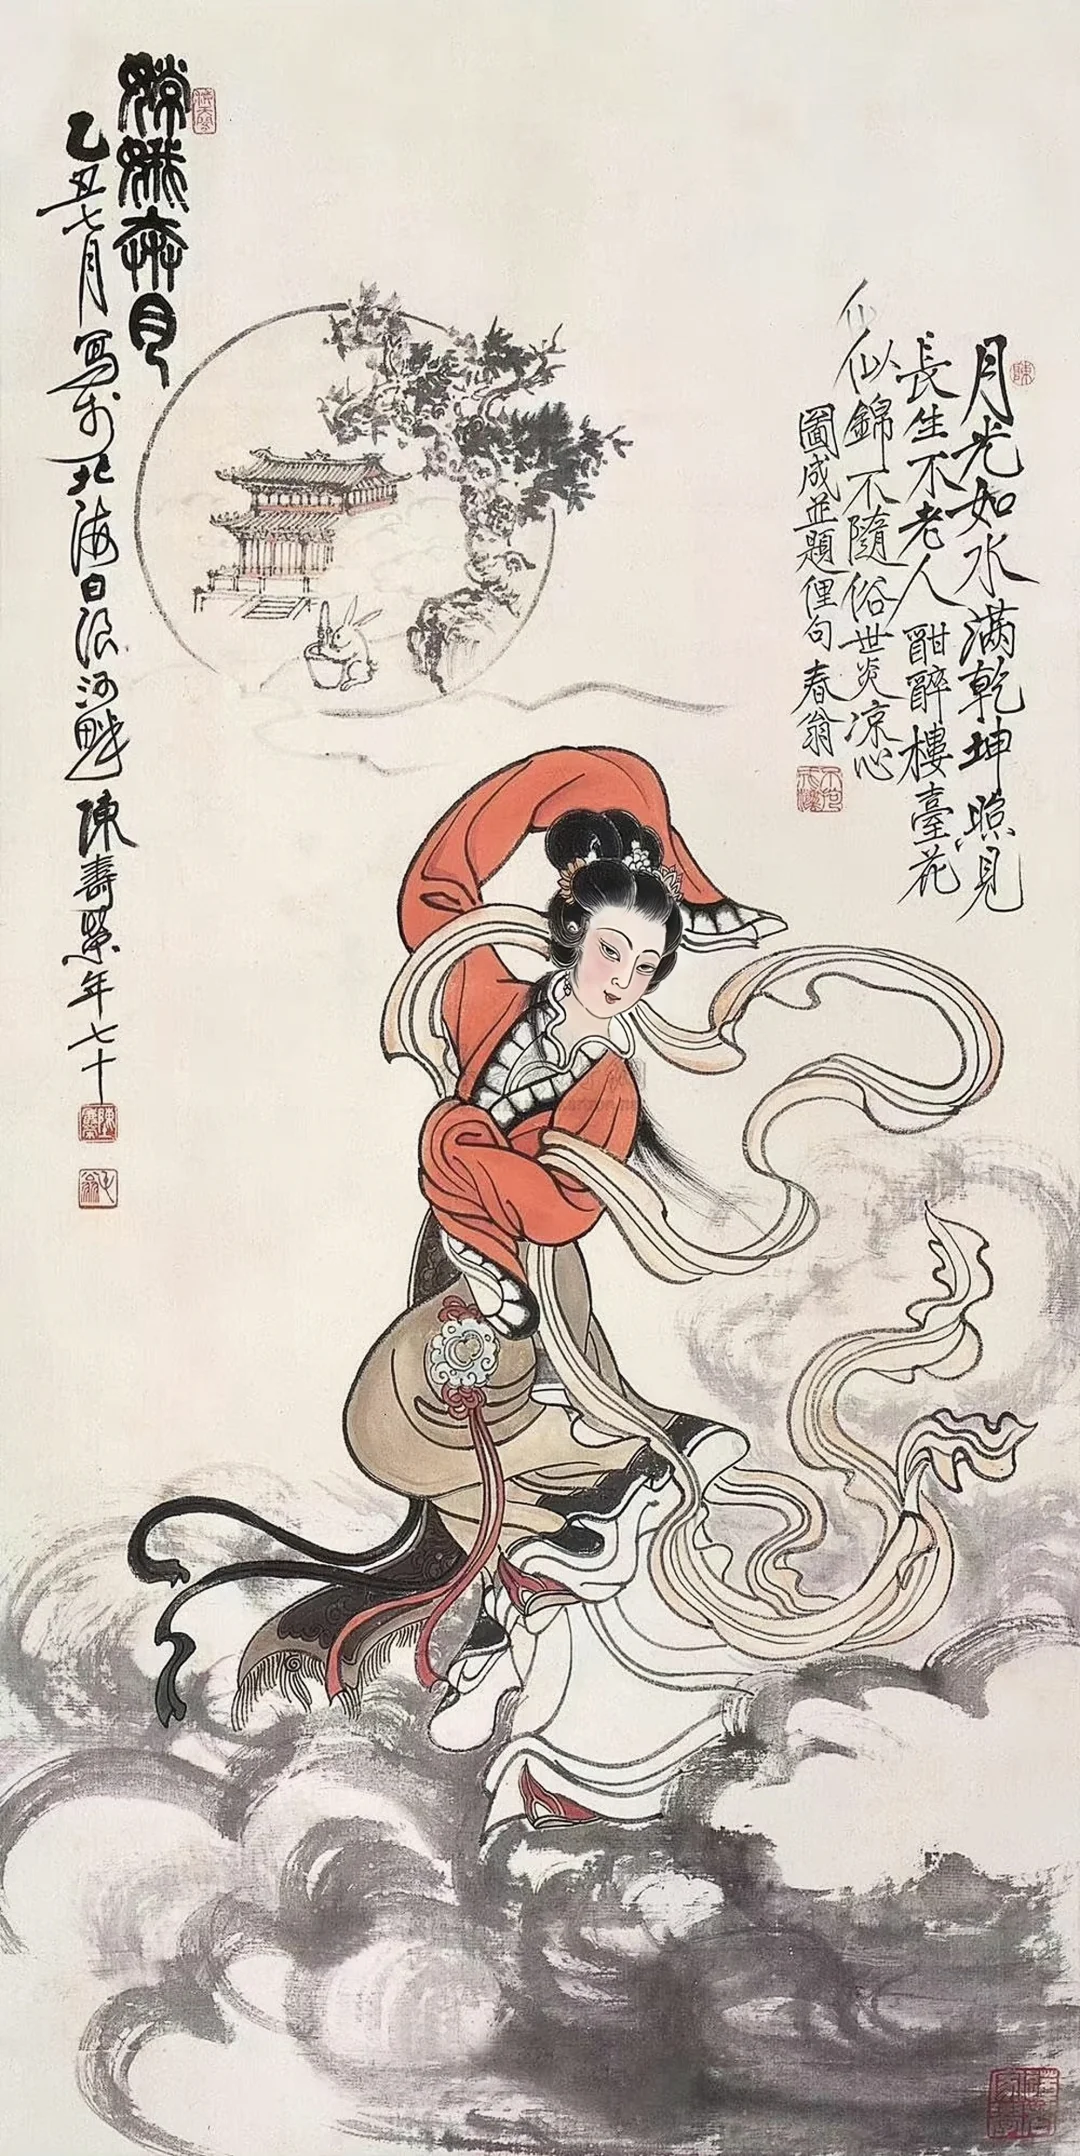 陳
月光如水满乾坤照見
長生不老人酣醉樓臺花
似錦不隨俗世炎凉心
圖成並題俚句春翁
嫦娥奔月
乙丑七月寫於北海白浪河畔陳壽榮年七十